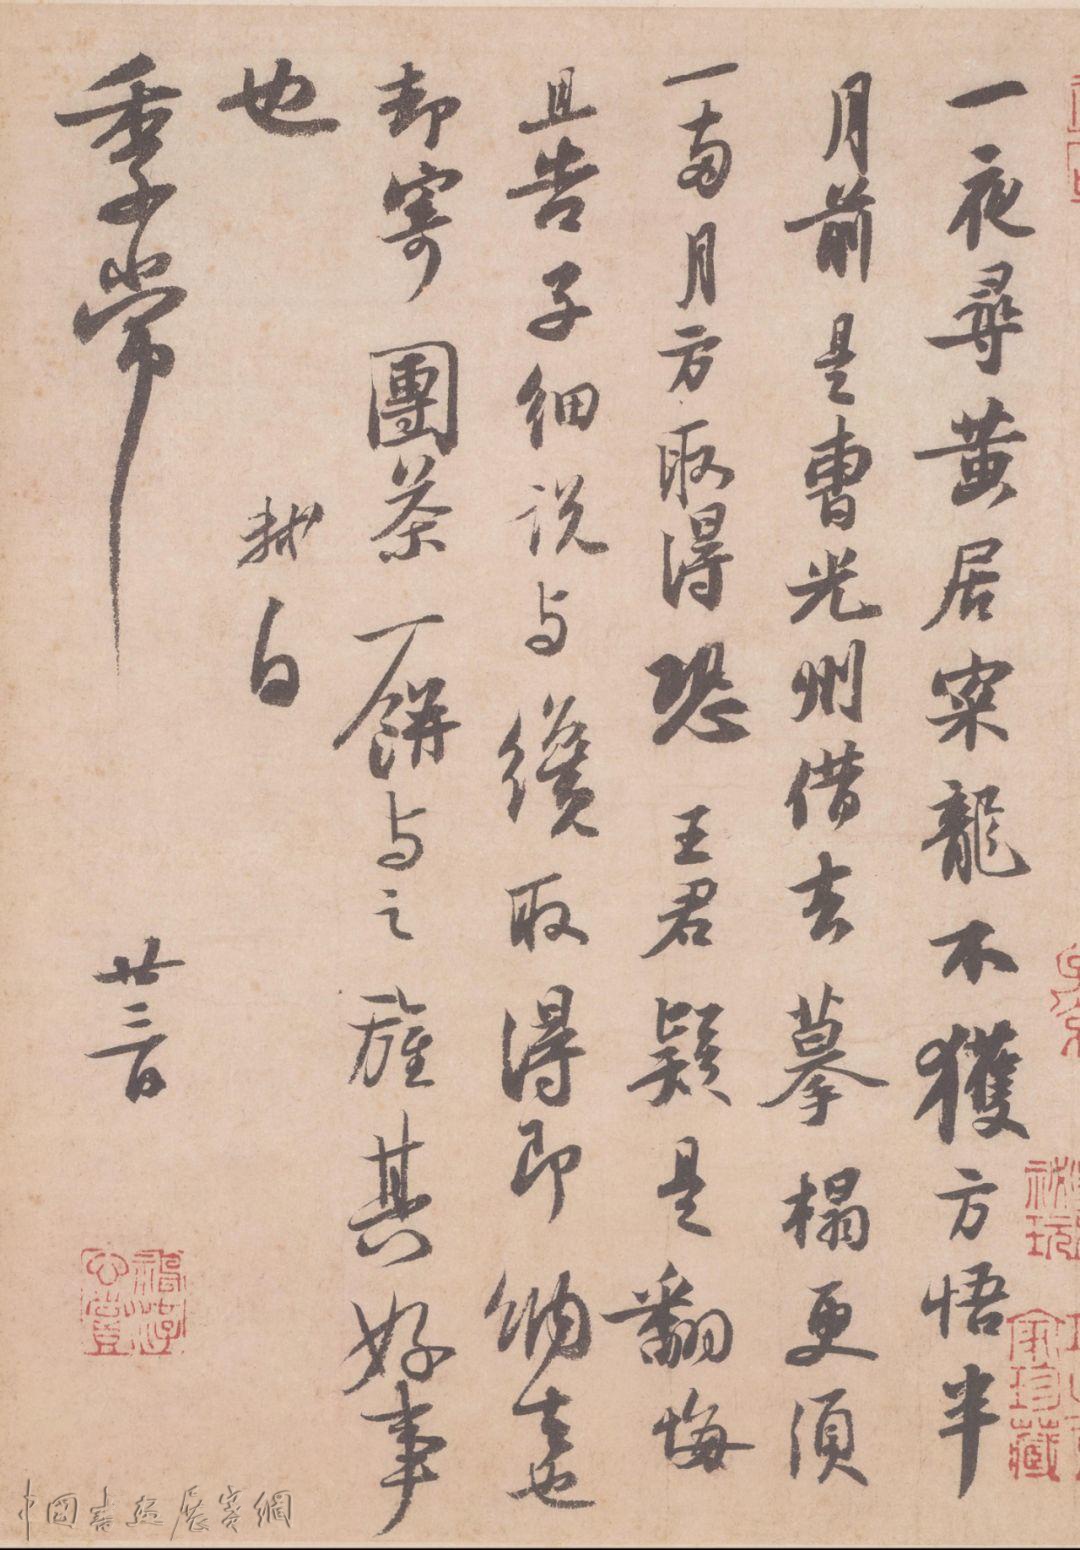 一夜尋黃居寀龍不獲方悟半
月前是曹光州借去摹搨更須
一兩月方取得恐王君疑是翻悔
且告子細說与纔取得即納去也
却寄團茶一餅与之旌其好事
也
軾白
季常
廿三日
中國書法展賽網